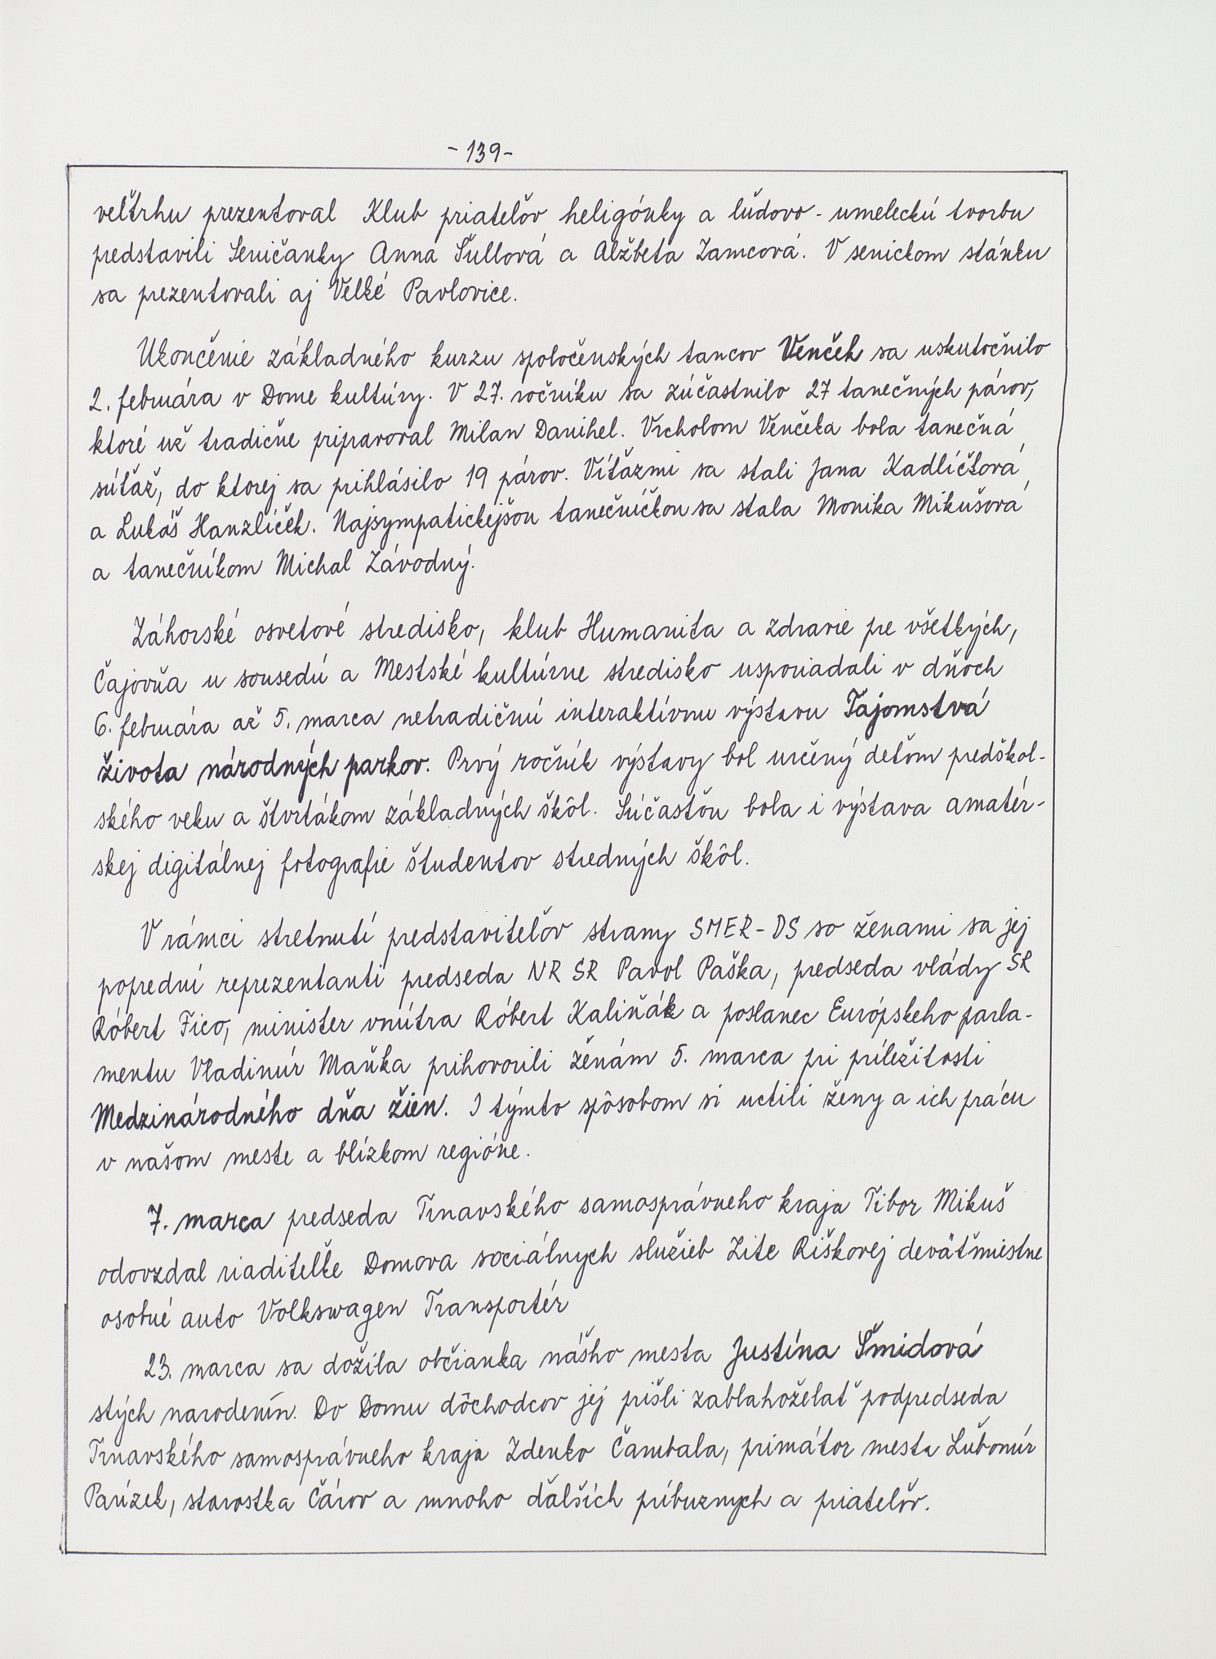 - 139 -
veľtrhu prezentoval Klub priateľov heligónky a ľudovo - umeleckú tvorbu
predstavili Seničanky Anna Šullová a Alžbeta Zamcová. V senickom stánku
sa prezentovali aj Veľké Pavlovice.
Ukončenie základného kurzu spoločenských tancov Venček sa uskutočnilo
2. februára v Dome kultúry. V 27. ročníku sa zúčastnilo 27 tanečných párov,
ktoré už tradične pripravoval Milan Danihel. Vrcholom Venčeka bola tanečná
súťaž, do ktorej sa prihlásilo 19 párov. Víťazmi sa stali Jana Kadlíčtová
a Lukáš Hanzlíček. Najsympatickejšou tanečníčkou sa stala Monika Mikušová
a tanečníkom Michal Závodný.
Záhorské osvetové stredisko, klub Humanita a zdravie pre všetkých,
Čajovňa u sousedú a Mestské kultúrne stredisko usporiadali v dňoch
6. februára až 5. marca netradičnú interaktívnu výstavu Tajomstvá
života národných parkov. Prvý ročník výstavy bol určený deťom predškol-
ského veku a štvrtákom základných škôl. Súčasťou bola i výstava amatér-
skej digitálnej fotografie študentov stredných škôl.
V rámci stretnutí predstaviteľov strany SMER - DS so ženami sa jej
poprední reprezentanti predseda NR SR Pavol Paška, predseda vlády SR
Róbert Fico, minister vnútra Róbert Kaliňák a poslanec Európskeho parla-
mentu Vladimír Maňka prihovorili ženám 5. marca pri príležitosti
Medzinárodného dňa žien. I týmto spôsobom si uctili ženy a ich prácu
v našom meste a blízkom regióne.
7. marca predseda Trnavského samosprávneho kraja Tibor Mikuš
odovzdal riaditeľke Domova sociálnych služieb Zite Riškovej deväťmiestne
osobné auto Volkswagen Transportér
23. marca sa dožila občianka nášho mesta Justína Šmidová
stých narodenín. Do Domu dôchodcov jej prišli zablahoželať podpredseda
Trnavského samosprávneho kraja Zdenko Čambala, primátor mesta Ľubomír
Parízek, starostka Čárov a mnoho ďalších príbuzných a priateľov.